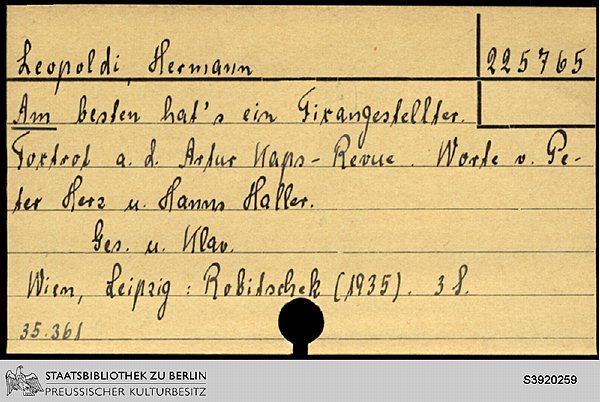 Leopoldi, Hermann
225765
Am besten hat's ein Fixangestellter.
Foxtrot a. d. Artur Kaps-Revue. Worte v. Pe-
ter Herz u. Hanns Haller.
Ges. u. Klav.
Wien, Leipzig: Robitschek (1935). 3 S.
35.361
STAATSBIBLIOTHEK ZU BERLIN
PREUSSISCHER KULTURBESITZ
S3920259